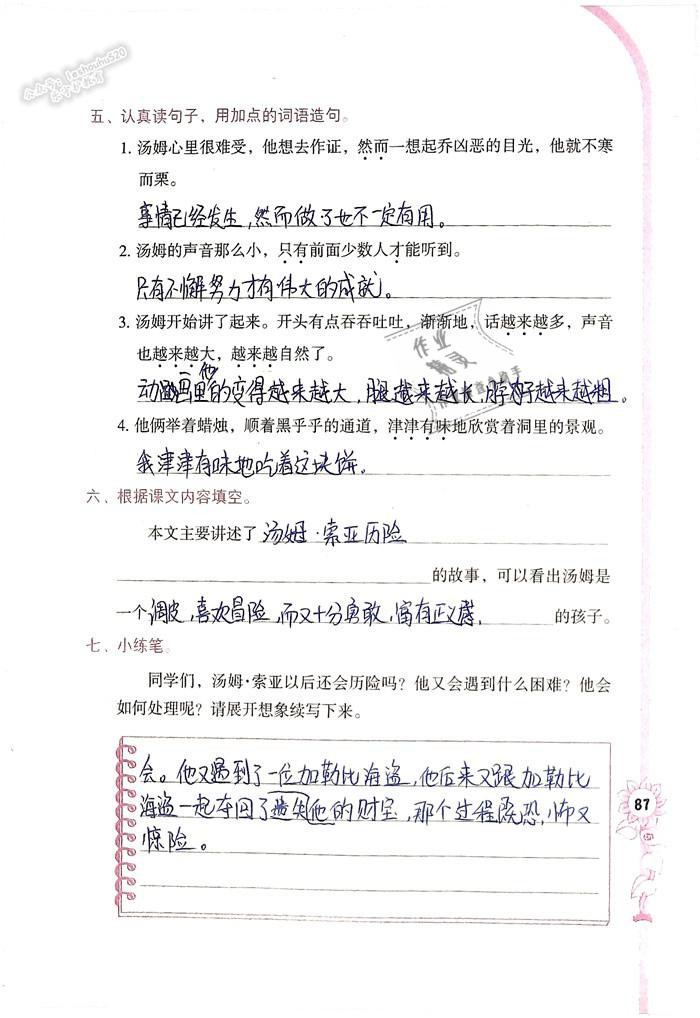 公众号：leshouhu520
乐守护教育
五、认真读句子，用加点的词语造句。
1. 汤姆心里很难受，他想去作证，然而一想起乔凶恶的目光，他就不寒
而栗。
事情已经发生，然而做了也不一定有用。
2. 汤姆的声音那么小，只有前面少数人才能听到。
只有不懈努力才有伟大的成就。
3. 汤姆开始讲了起来。开头有点吞吞吐吐，渐渐地，话越来越多，声音
也越来越大，越来越自然了。
动画里的他变得越来越大，腿越来越长，脖子越来越粗。
4. 他俩举着蜡烛，顺着黑乎乎的通道，津津有味地欣赏着洞里的景观。
我津津有味地吃着这块饼。
六、根据课文内容填空。
本文主要讲述了 汤姆·索亚历险
的故事，可以看出汤姆是
一个 调皮，喜欢冒险，而又十分勇敢，富有正义感， 的孩子。
七、小练笔。
同学们，汤姆·索亚以后还会历险吗？他又会遇到什么困难？他会
如何处理呢？请展开想象续写下来。
会。他又遇到了一位加勒比海盗，他后来又跟加勒比
海盗一起夺回了遗失他的财宝，那个过程既恐怖又
惊险。
87
作业
精灵